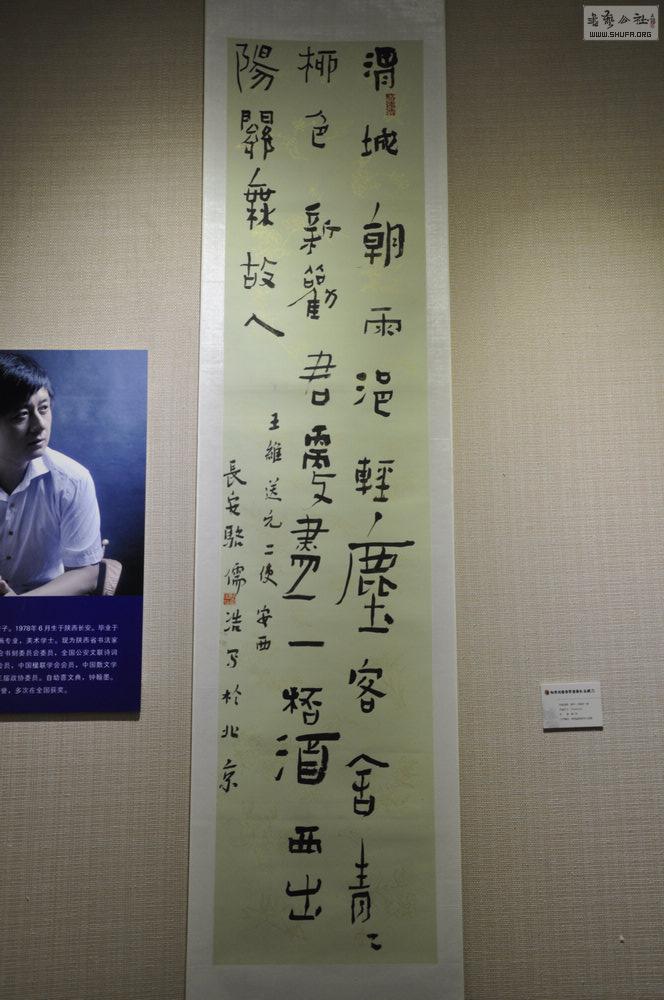 渭城朝雨浥輕塵客舍青〻
柳色新勸君更盡一桮酒西出
陽關無故人
王維送元二使安西
長安駱儒浩写於北京
子。1978年6月生于陕西长安。毕业于
画专业，美术学士。现为陕西省书法家
会书刻委员会委员，全国公安文联诗词
会员，中国楹联学会会员，中国散文学
三届政协委员。自幼喜文典，钟翰墨。
誉，多次在全国获奖。
书艺公社
WWW.SHUFA.ORG